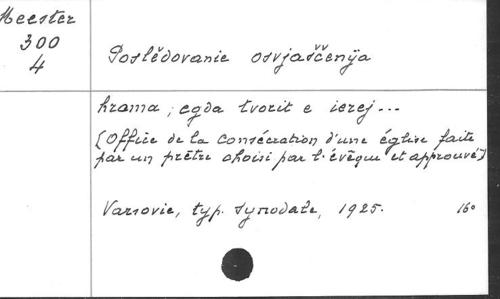 Meester
300
4
Poslĕdovanie osvjaščenija
hrama, egda tvorit e ierej...
(Office de la consécration d'une église faite
par un prêtre choisi par l'évêque et approuvé)
Varsovie, typ. synodale, 1925. 16°